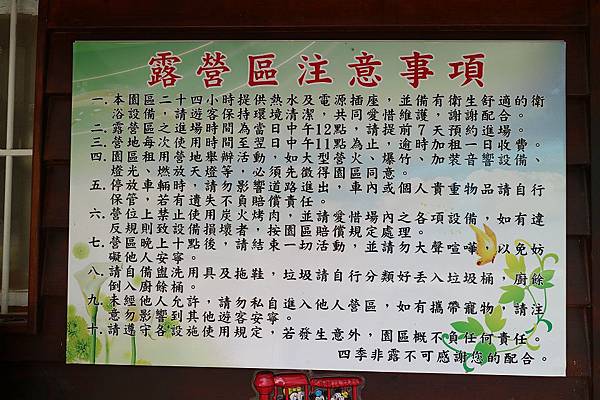 露營區注意事項
一．本園區二十四小時提供熱水及電源插座，並備有衛生舒適的衛
浴設備，請遊客保持環境清潔，共同愛惜維護，謝謝配合。
二．露營之進場時間為當日中午12點，請提前7天預約進場。
三．營地每次使用時間至翌日中午11點為止，逾時加租一日收費。
四．園區租營放地舉辦活動，如大型營火、爆竹、加裝音響設備、
燈光、燃天燈等，必須先徵得園區同意。
五．停放車輛時，請勿影響道路進出，車內或個人貴重物品請自行
保管，若有遺失恕不負賠償責任。
六．營位上禁止使用炭火烤肉，並請愛惜場內之各項設備，如有違
反規則致設備損壞者，按園區賠償規定處理。
七．營區晚上十點後，請結束一切活動，並請勿大聲喧嘩，以免妨
礙他人安寧。
八．請自備盥洗用具及拖鞋，垃圾請自行分類好丟入垃圾桶，廚餘
倒入廚餘桶。
九．未經他人允許，請勿私自進入他人營區，如有攜帶寵物，請注
意勿影響到其他遊客安寧。
十．請遵守各設施使用規定，若發生意外，園區概不負任何責任。
四季非露不可感謝您的配合。